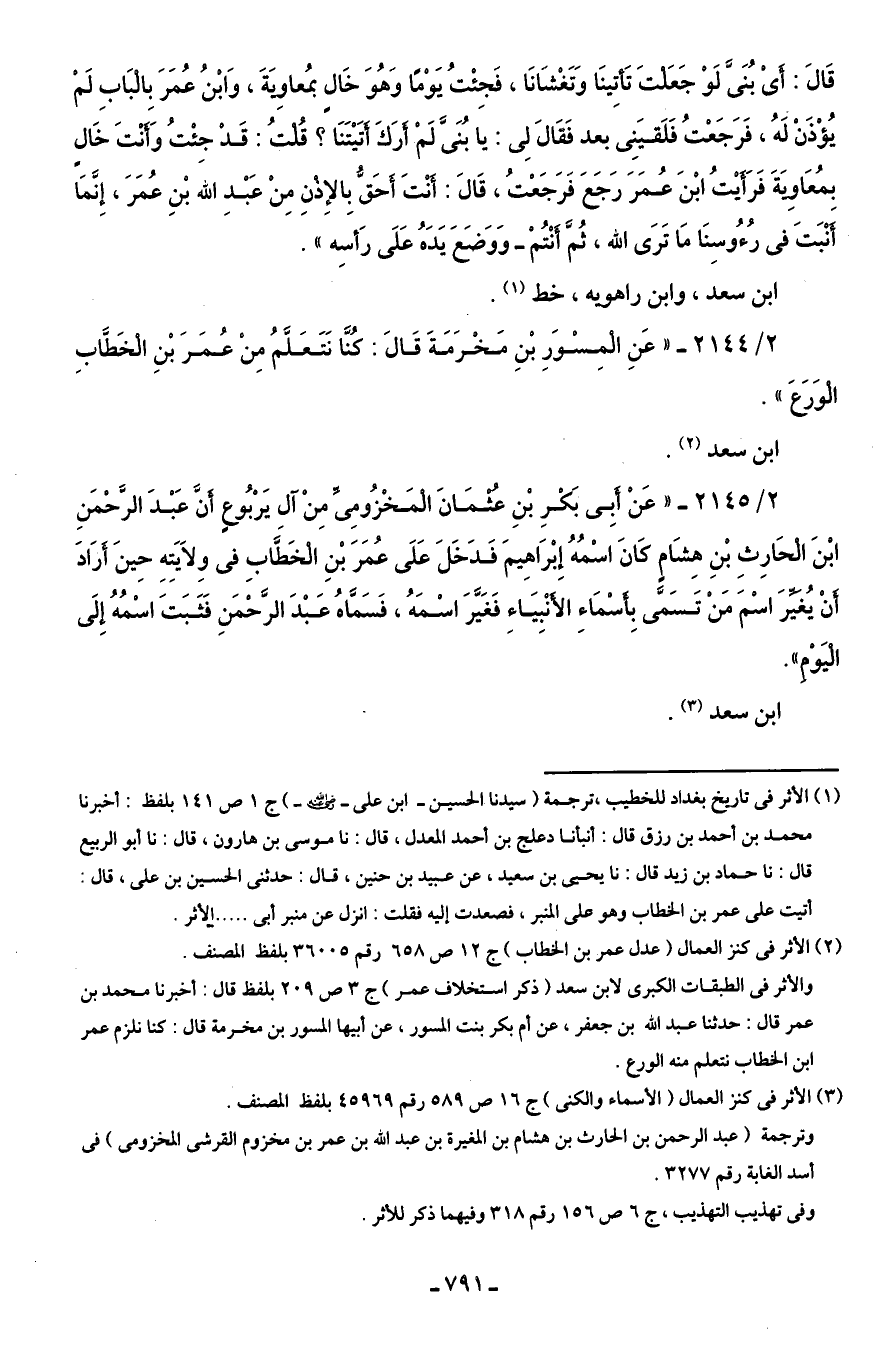 قَالَ : أَىْ بُنَىَّ لَوْ جَعَلْتَ تَأتينَا وَتَغْشَانَا ، فَجِئْتُ يَوْمًا وَهُوَ خَالٍ بمُعاويَةَ ، وَابْنُ عُمَرَ بِالْبَابِ لَمْ
يُؤْذَنْ لَهُ ، فَرَجَعْتُ فَلَقيَنِى بعد فَقَالَ لِى : يا بُنَىَّ لَمْ أَرَكَ أَتَيْتَنَا ؟ قُلْتُ : قَدْ جِئْتُ وَأَنْتَ خَالٍ
بِمُعَاوِيَةَ فَرَأَيْتُ ابْنَ عُمَرَ رَجَعَ فَرَجَعْتُ ، قَالَ : أَنْتَ أَحَقُّ بِالإِذْنِ مِنْ عَبْدِ الله بْنِ عُمَرَ ، إِنَّمَا
أَنْبَتَ فى رُءُوسنَا مَا تَرَى الله ، ثُمَّ أَنْتُمْ ـ وَوَضَعَ يَدَهُ عَلَى رَأسه » .
ابن سعد ، وابن راهويه ، خط (١) .
٢/ ٢١٤٤ ـ « عَنِ الْمِسْوَرِ بْنِ مَخْرَمَةَ قَالَ : كُنَّا نَتَعَلَّمُ مِنْ عُمَرَ بْنِ الْخَطَّابِ
الْوَرَعَ » .
ابن سعد (٢) .
٢/ ٢١٤٥ ـ « عَنْ أَبِى بَكْرِ بْنِ عُثْمَانَ الْمَخْزُومِىِّ مِنْ آلِ يَرْبُوعٍ أَنَّ عَبْدَ الرَّحْمَنِ
ابْنَ الْحَارِثِ بْنِ هِشَامٍ كَانَ اسْمُهُ إِبْرَاهِيمَ فَدَخَلَ عَلَى عُمَرَ بْنِ الْخَطَّابِ فى ولاَيَته حينَ أَرَادَ
أَنْ يُغَيِّرَ اسْمَ مَنْ تَسَمَّى بِأَسْمَاءِ الأَنْبيَاءِ فَغَيَّرَ اسْمَهُ ، فَسَمَّاهُ عَبْدَ الرَّحْمَنِ فَثَبَتَ اسْمُهُ إِلَى
الْيَوْمِ».
ابن سعد (٣) .
(١) الأثر فى تاريخ بغداد للخطيب ،ترجمة ( سيدنا الحسين ـ ابن على ـ ﵁ ـ ) ج ١ ص ١٤١ بلفظ : أخبرنا
محمد بن أحمد بن رزق قال : أنبأنا دعلج بن أحمد المعدل ، قال : نا موسى بن هارون ، قال : نا أبو الربيع
قال : نا حماد بن زيد قال : نا يحيى بن سعيد ، عن عبيد بن حنين ، قال : حدثنى الحسين بن على ، قال :
أتيت على عمر بن الخطاب وهو على المنبر ، فصعدت إليه فقلت : انزل عن منبر أبى .....الأثر .
(٢) الأثر فى كنز العمال ( عدل عمر بن الخطاب ) ج ١٢ ص ٦٥٨ رقم ٣٦٠٠٥ بلفظ المصنف .
والأثر فى الطبقات الكبرى لابن سعد ( ذكر استخلاف عمر ) ج ٣ ص ٢٠٩ بلفظ قال : أخبرنا محمد بن
عمر قال : حدثنا عبد الله بن جعفر ، عن أم بكر بنت المسور ، عن أبيها المسور بن مخرمة قال : كنا نلزم عمر
ابن الخطاب نتعلم منه الورع .
(٣) الأثر فى كنز العمال ( الأسماء والكنى ) ج ١٦ ص ٥٨٩ رقم ٤٥٩٦٩ بلفظ المصنف .
وترجمة ( عبد الرحمن بن الحارث بن هشام بن المغيرة بن عبد الله بن عمر بن مخزوم القرشى المخزومى ) فى
أسد الغابة رقم ٣٢٧٧ .
وفى تهذيب التهذيب ، ج ٦ ص ١٥٦ رقم ٣١٨ وفيهما ذكر للأثر .
ـ ٧٩١ ـ